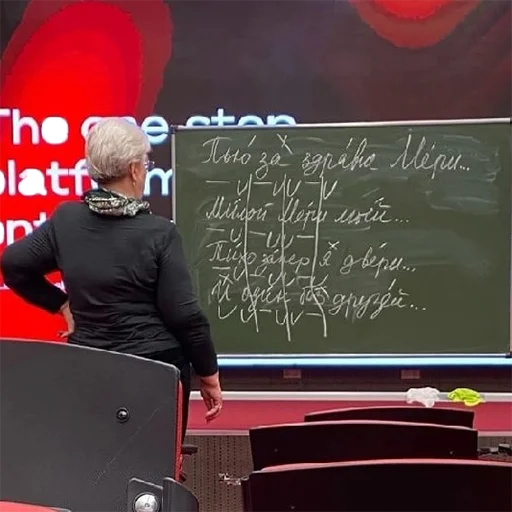 The one-stop
platform
Пью за здравие Мери...
Милой Мери моей...
Тихо запер я двери...
И один без друзей...